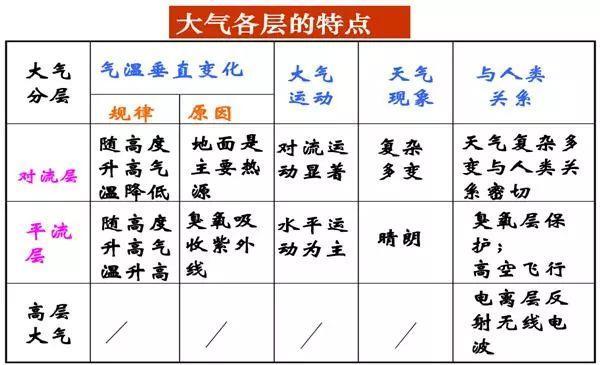 大气各层的特点
大气
分层
气温垂直变化
规律
原因
大气
运动
天气
现象
与人类
关系
对流层
随高度
升高气
温降低
地面是
主要热
源
对流运
动显著
复杂
多变
天气复杂多
变与人类关
系密切
平流
层
随高度
升高气
温升高
臭氧吸
收紫外
线
水平运
动为主
晴朗
臭氧层保
护；
高空飞行
高层
大气
/
/
/
/
电离层反
射无线电
波